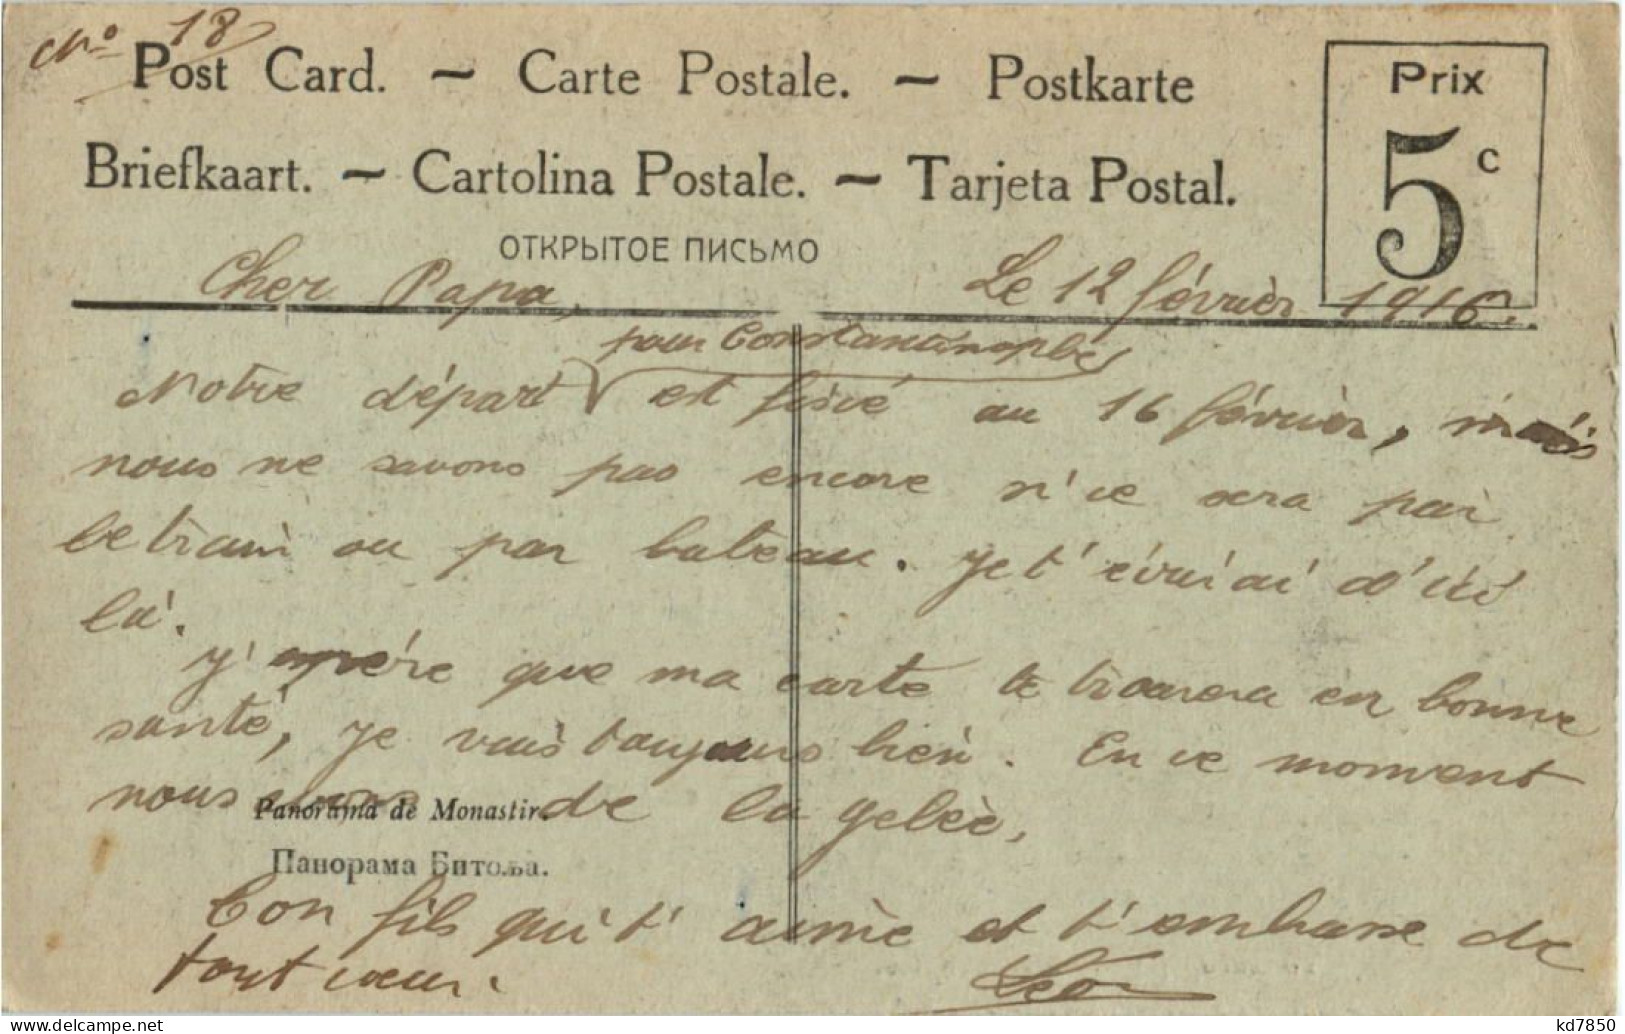 No 18
Post Card. – Carte Postale. – Postkarte
Prix
5 c
Briefkaart. – Cartolina Postale. – Tarjeta Postal.
ОТКРЫТОЕ ПИСЬМО
Cher Papa, Le 12 février 1916.
pour Constantinople
Notre départ est fixé au 16 février, mais
nous ne savons pas encore si ce sera par
le train ou par bateau. Je t'écrirai d'ici
là.
J'espère que ma carte te trouvera en bonne
santé, je vais toujours bien. En ce moment
nous avons de la gelée,
Panorama de Monastir.
Панорама Битоља.
Ton fils qui t'aime et t'embrasse de
tout cœur.
Léon
delcampe.net
kd7850